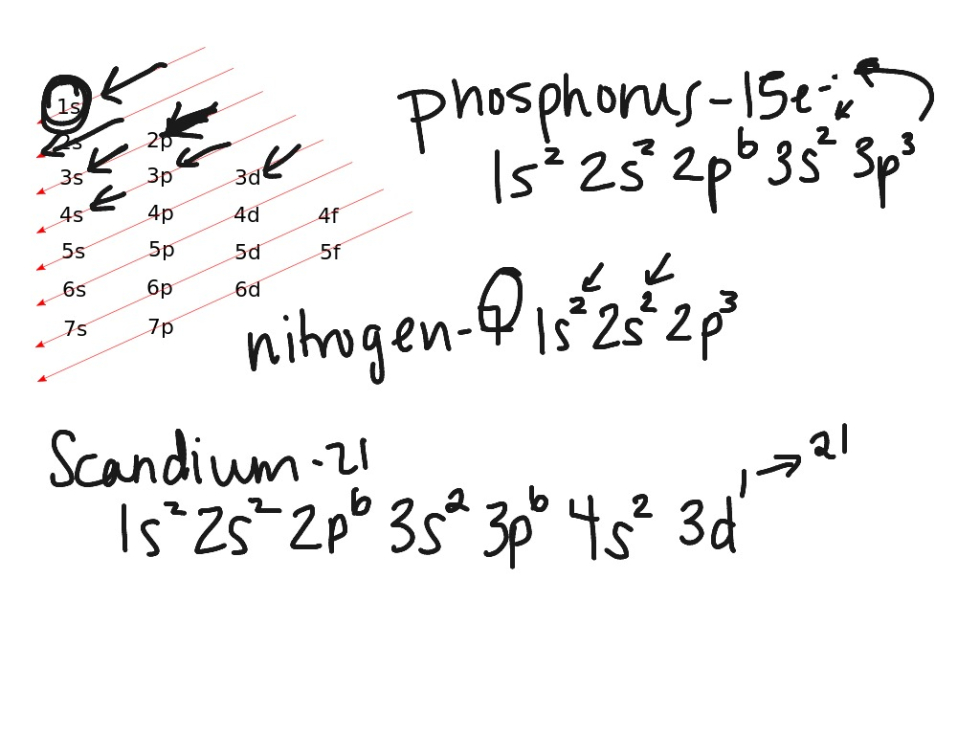 1s
2s 2p
3s 3p 3d
4s 4p 4d 4f
5s 5p 5d 5f
6s 6p 6d
7s 7p
phosphorus - 15e-
1s² 2s² 2p⁶ 3s² 3p³
nitrogen - 7 1s² 2s² 2p³
Scandium - 21
1s² 2s² 2p⁶ 3s² 3p⁶ 4s² 3d¹ → 21